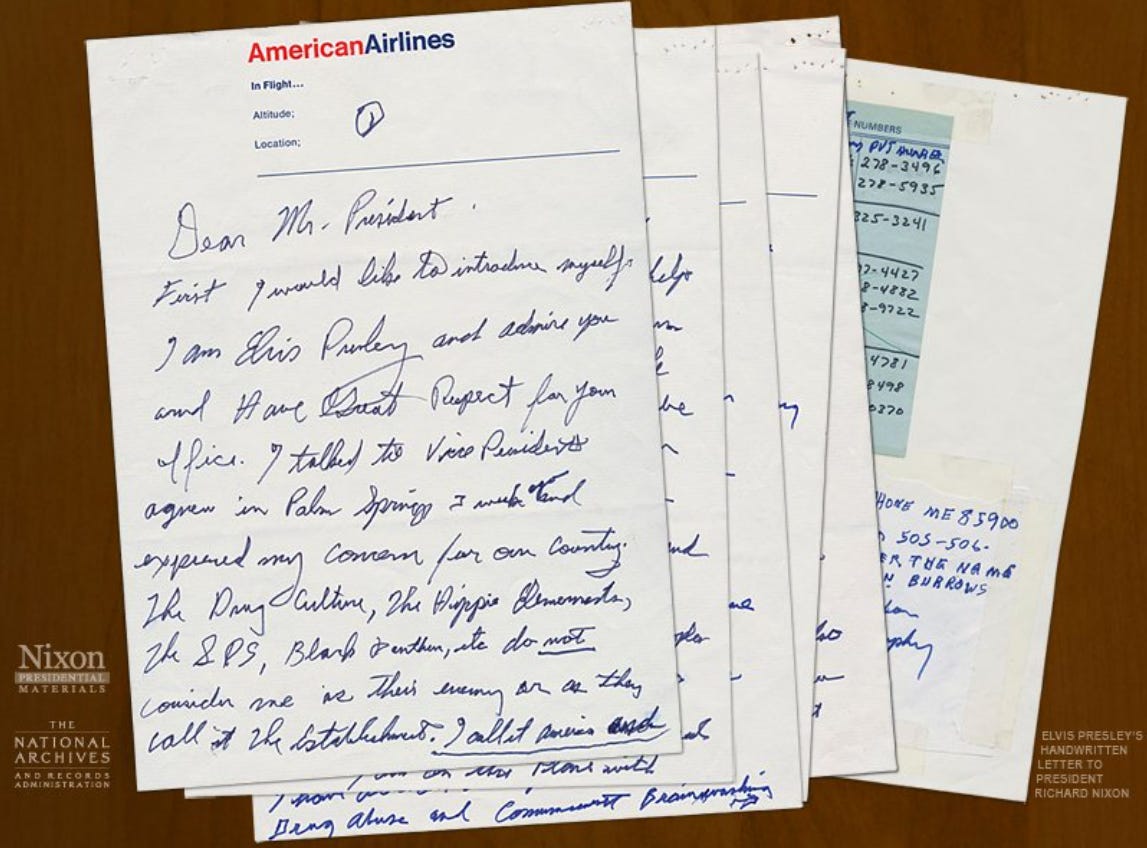 AmericanAirlines
In Flight...
Altitude;
Location;
1
Dear Mr. President.
First I would like to introduce myself.
I am Elvis Presley and admire you
and Have Great Respect for your
office. I talked to Vice President
agnew in Palm Springs 3 weeks and
expressed my concern for our country.
The Drug Culture, The Hippie Elements,
The SDS, Black Panthers, etc do not
consider me as their enemy or as they
call it The Establishment. I call it America and
I have
on the Plane with
Drug abuse and Communist Brainwashing
help
be
NUMBERS
PVT NUMBER
278-3496
278-5935
325-3241
7-4427
8-4882
-9722
4781
8498
0370
HONE ME 85900
505-506.
ER THE NAME
N BURROWS
Nixon
PRESIDENTIAL
MATERIALS
THE
NATIONAL
ARCHIVES
AND RECORDS
ADMINISTRATION
ELVIS PRESLEY'S
HANDWRITTEN
LETTER TO
PRESIDENT
RICHARD NIXON